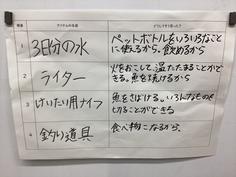 アイテムの名前
どうしてそう思った？
1
3日分の水
ペットボトルをいろいろなこと
に使えるから。飲めるから
2
ライター
火をおこして、温たたまることがで
きる。魚を焼けるから
3
けいたい用ナイフ
魚をさばける。いろんなものを
切ることができる
4
釣り道具
食べ物になるから、